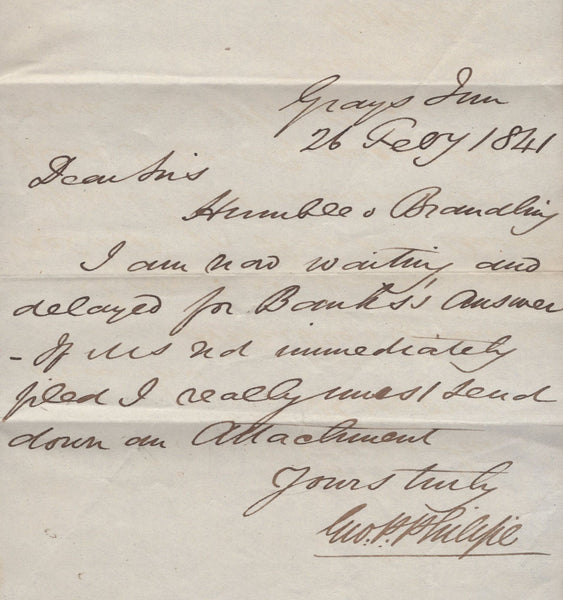 Grays Inn
26 Feby 1841
Dear Sirs
Humble v Brandling
I am now waiting and
delayed for Banks's Answer
- If not immediately
filed I really must send
down an Attachment
Yours truly
Geo. H. Philipe